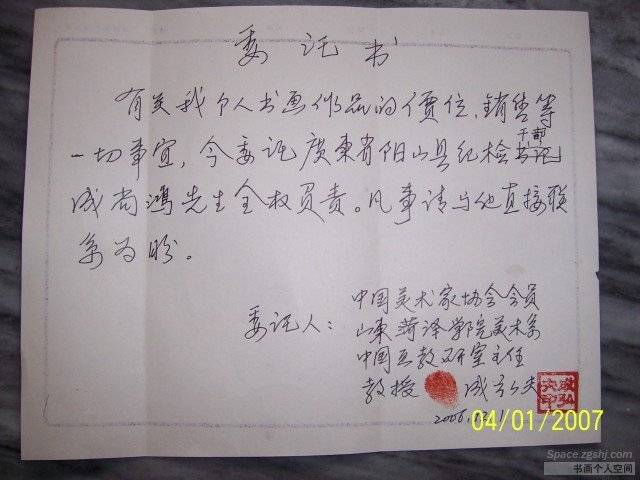 委托书
有关我个人书画作品的價位、銷售等
干部
一切事宜，今委託廣東省阳山县纪检书记
成尚鴻先生全权负责。凡事请与他直接联
系为盼。
委託人：
中国美术家协会会员
山東菏泽學院美术系
中国画教研室主任
教授
2006.
04/01/2007
Space.zgshj.com
书画个人空间